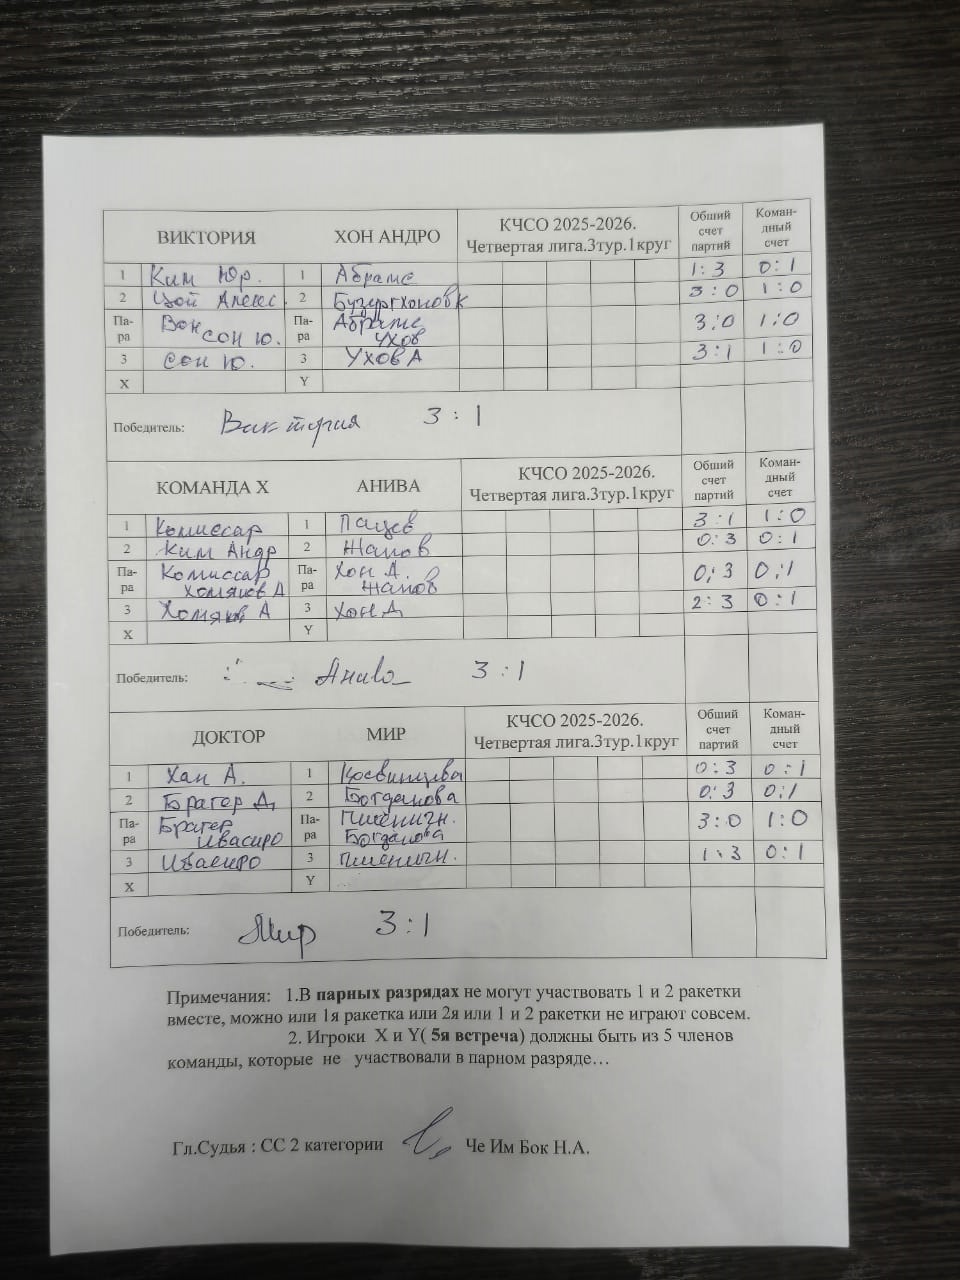 ВИКТОРИЯ ХОН АНДРО КЧСО 2025-2026. Четвертая лига.3тур.1круг Общий счет партий Коман-дный счет
1 Ким Юр. 1 Абраме 1:3 0:1
2 Цой Алекс. 2 Бузургхоновк 3:0 1:0
Па-ра Вон Сон Ю. Па-ра Абраме Ухов 3:0 1:0
3 Сон Ю. 3 Ухов А 3:1 1:0
X Y
Победитель: Виктория 3:1
КОМАНДА Х АНИВА КЧСО 2025-2026. Четвертая лига.3тур.1круг Общий счет партий Коман-дный счет
1 Комиссар 1 Пацев 3:1 1:0
2 Ким Андр 2 Жапов 0:3 0:1
Па-ра Комиссар Хомяков А Па-ра Хон Д. Жапов 0:3 0:1
3 Хомяков А 3 Хон Д 2:3 0:1
X Y
Победитель: Анива 3:1
ДОКТОР МИР КЧСО 2025-2026. Четвертая лига.3тур.1круг Общий счет партий Коман-дный счет
1 Хан А. 1 0:3 0:1
2 Брагер Д. 2 Богданова 0:3 0:1
Па-ра Брагер Ивасиро Па-ра Пшеничн. Богданова 3:0 1:0
3 Ивасиро 3 Пшеничн. 1:3 0:1
X Y
Победитель: Мир 3:1
Примечания: 1.В парных разрядах не могут участвовать 1 и 2 ракетки
вместе, можно или 1я ракетка или 2я или 1 и 2 ракетки не играют совсем.
2. Игроки X и Y( 5я встреча) должны быть из 5 членов
команды, которые не участвовали в парном разряде…
Гл.Судья : СС 2 категории Че Им Бок Н.А.